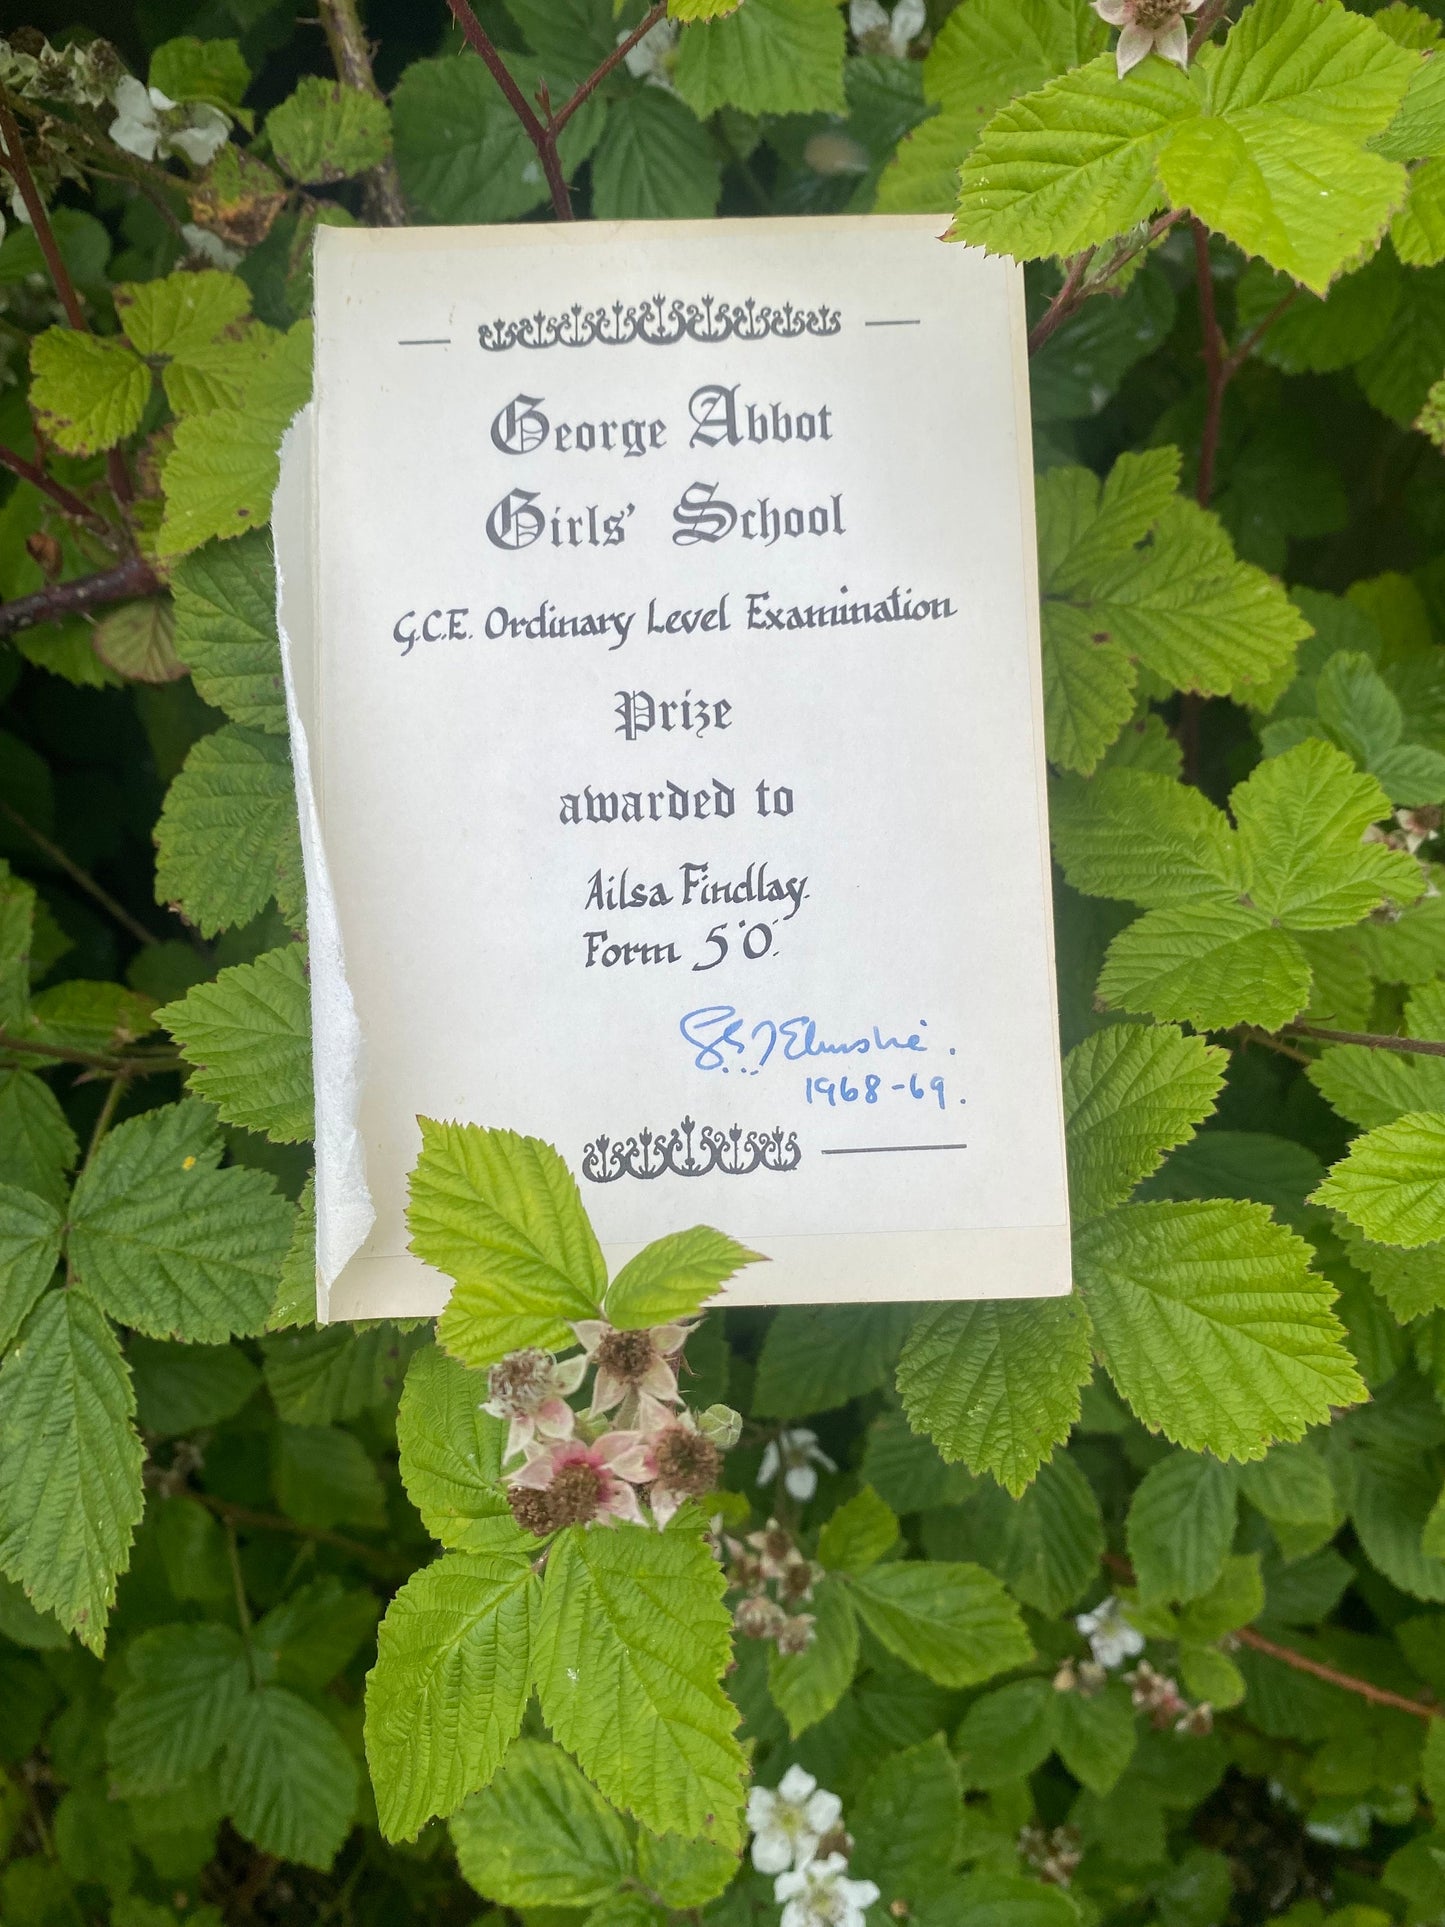 George Abbot
Girls' School
G.C.E. Ordinary Level Examination
Prize
awarded to
Ailsa Findlay.
Form 5'O'.
1968-69.